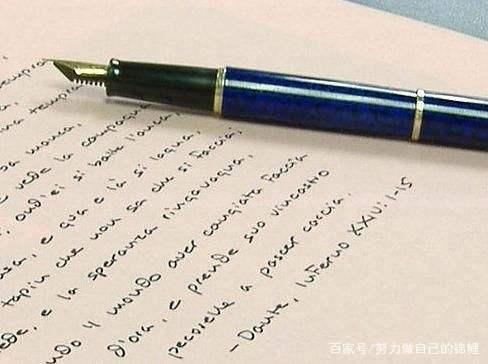 tempra,
manca,
e vede la campagna
ond'ei si batte l'anca,
e qua e là si lagna,
tapin che non sa che si faccia;
e la speranza ringavagna,
'l mondo aver cangiata faccia
d'ora, e prende suo vincastro
pecorelle a pascer caccia.
- Dante, Inferno XXIV:1-15
百家号/努力做自己的锦鲤